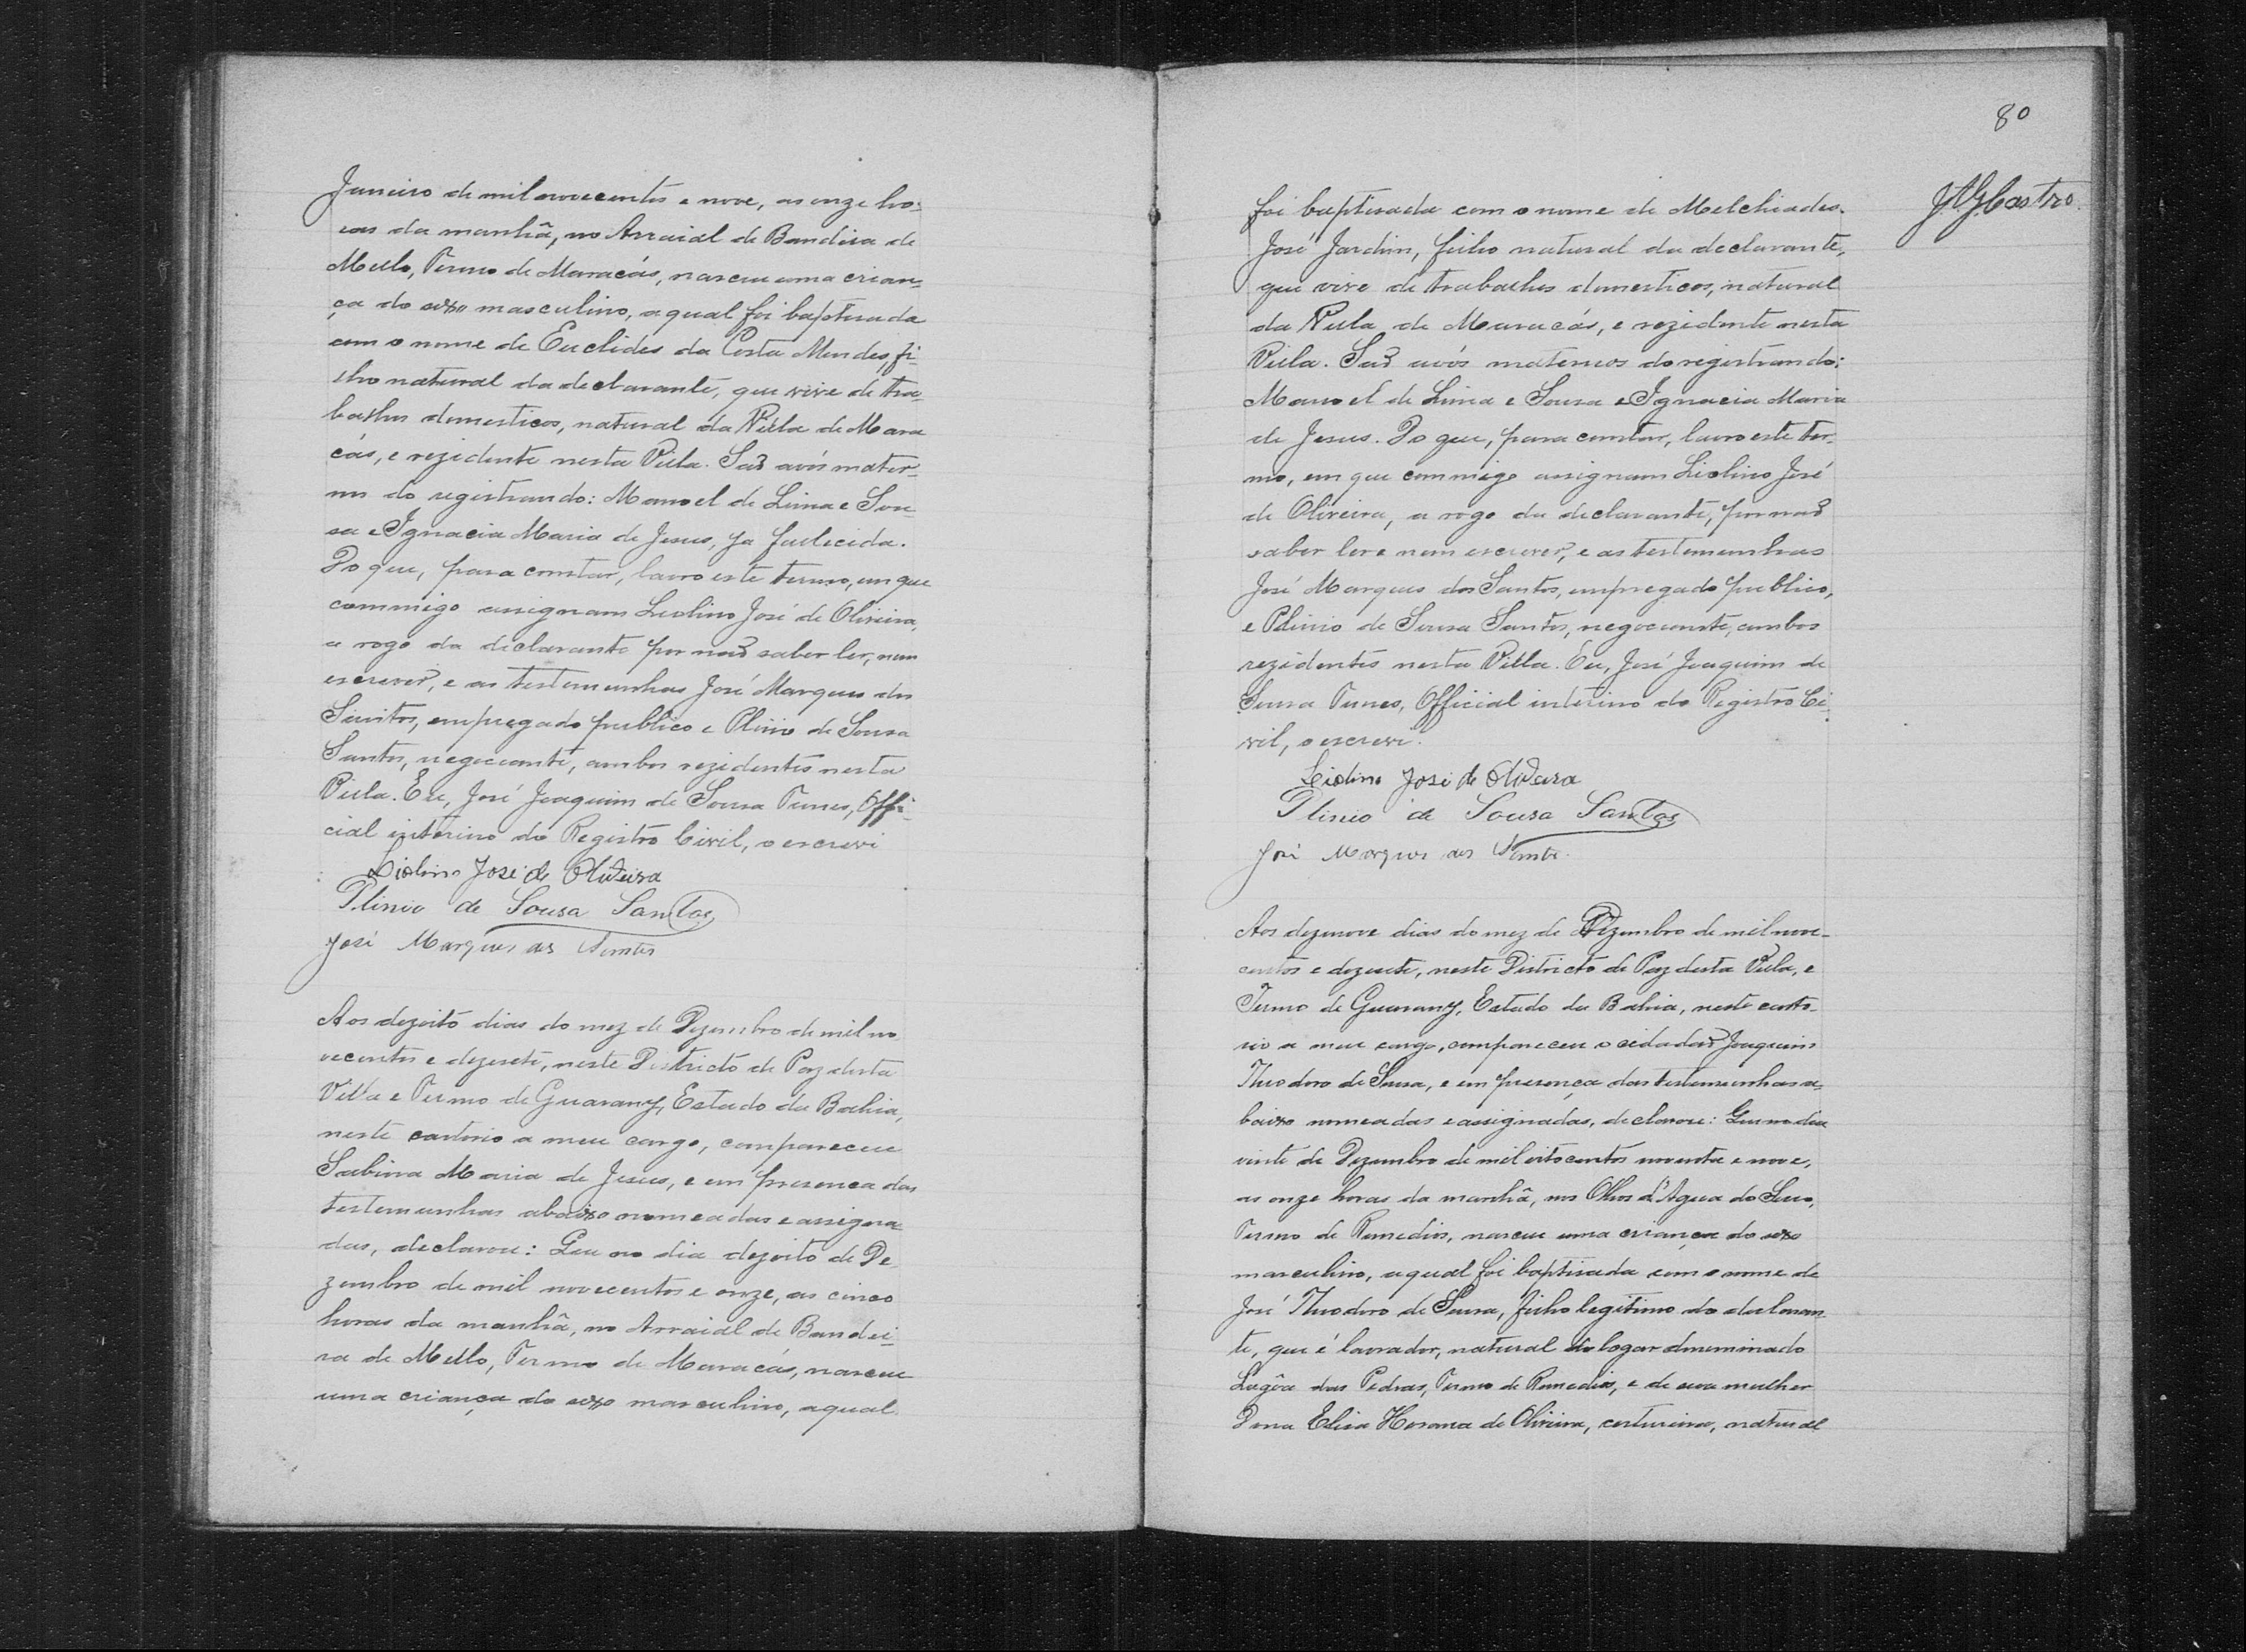 Janeiro de mil novecentos e nove, as onze ho-
ras da manhã, no Arraial de Bandeira de
Mello, Termo de Maracás, nasceu uma crian-
ça do sexo masculino, a qual foi baptisada
com o nome de Euclides da Costa Mendes, fi-
lho natural da declarante, que vive de tra-
balhos domesticos, natural da Villa de Mara
cás, e rezidente nesta Villa. São avós mater-
nos do registrando: Manoel de Lima e Sou
sa e Ignacia Maria de Jesus, ja fallecida.
Do que, para constar, lavro este termo, em que
commigo assignam Liolino José de Oliveira,
a rogo da declarante por não saber ler, nem
escrever, e as testemunhas José Marques dos
Santos, empregado publico e Plinio de Sousa
Santos, negociante, ambos rezidentes nesta
Villa. Eu, José Joaquim de Sousa Tunes, Offi-
cial interino do Registro Civil, o escrevi
Liolino José de Oliveira
Plinio de Sousa Santos
José Marques dos Santos
Aos dezoito dias do mez de Dezembro de mil no
vecentos e dezesete, neste Districto de Paz desta
Villa e Termo de Guarany, Estado da Bahia,
neste cartorio a meu cargo, compareceu
Sabina Maria de Jesus, e em presença das
testemunhas abaixo nomeadas e assigna
das, declarou: Que no dia dezoito de De
zembro de mil novecentos e onze, as cinco
horas da manhã, no Arraial de Bandei-
ra de Mello, Termo de Maracás, nasceu
uma criança do sexo masculino, a qual
80
foi baptisada com o nome de Melchiades
José Jardim, filho natural da declarante,
que vive de trabalhos domesticos, natural
da Villa de Maracás, e rezidente nesta
Villa. São avós maternos do registrando:
Manoel de Lima e Sousa e Ignacia Maria
de Jesus. Do que, para constar, lavro este ter-
mo, em que commigo assignam Liolino José
de Oliveira, a rogo da declarante, por não
saber ler e nem escrever, e as testemunhas
José Marques dos Santos, empregado publico,
e Plinio de Sousa Santos, negociante, ambos
rezidentes nesta Villa. Eu, José Joaquim de
Sousa Tunes, Official interino do Registro Ci-
vil, o escrevi.
Liolino José de Oliveira
Plinio de Sousa Santos
José Marques dos Santos
Aos dezenove dias do mez de Dezembro de mil nove-
centos e dezesete, neste Districto de Paz desta Villa, e
Termo de Guarany, Estado da Bahia, neste carto-
rio a meu cargo, compareceu o cidadão Joaquim
Theodoro de Sousa, e em presença das testemunhas a-
baixo nomeadas e assignadas, declarou: Que no dia
vinte de Dezembro de mil oitocentos noventa e nove,
as onze horas da manhã, nos Olhos d'Agua do
Termo de Remedios, nasceu uma criança do sexo
masculino, a qual foi baptisada com o nome de
José Theodoro de Sousa, filho legitimo do declaran-
te, que é lavrador, natural do logar denominado
Lagôa das Pedras, Termo de Remedios, e de sua mulher
Dona Elisa de Oliveira, costureira, natural
Castro